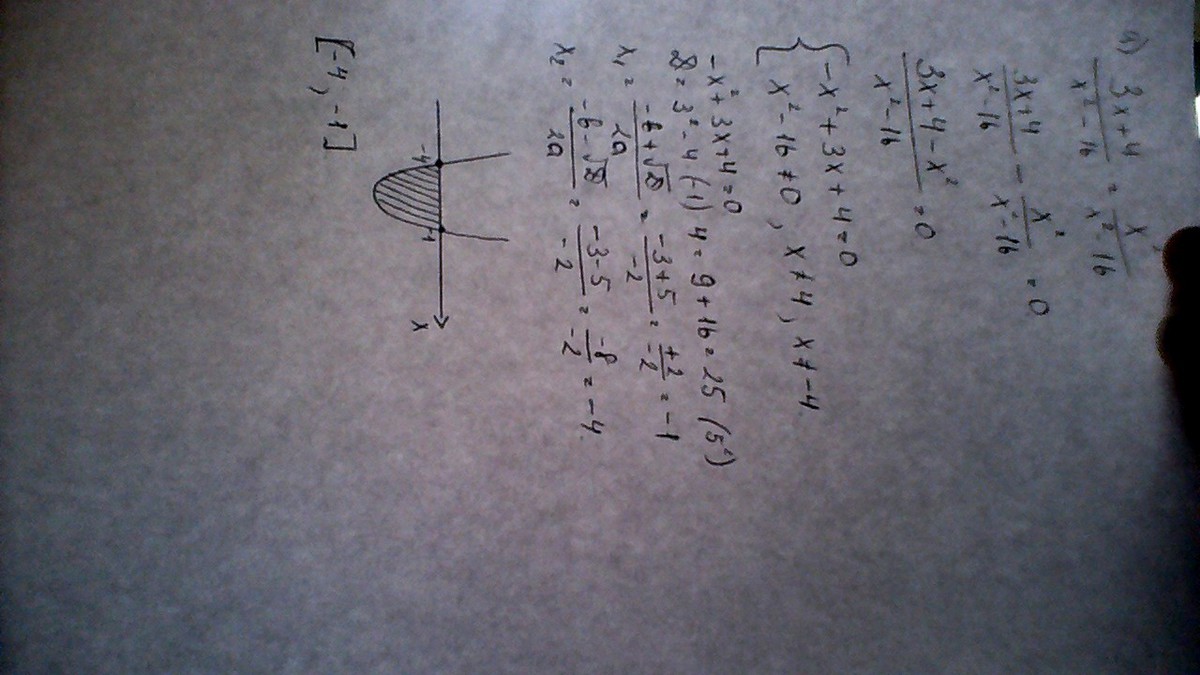 а) (3x+4)/(x²-16) = x²/(x²-16)
(3x+4)/(x²-16) - x²/(x²-16) = 0
(3x+4-x²)/(x²-16) = 0
{ -x²+3x+4=0
x²-16≠0, x≠4, x≠-4.
-x²+3x+4=0
D=3²-4(-1)4=9+16=25 (5²)
x₁ = (-b+√D)/2a = (-3+5)/-2 = +2/-2 = -1
x₂ = (-b-√D)/2a = (-3-5)/-2 = -8/-2 = -4.
-4 -1 x
[-4, -1]